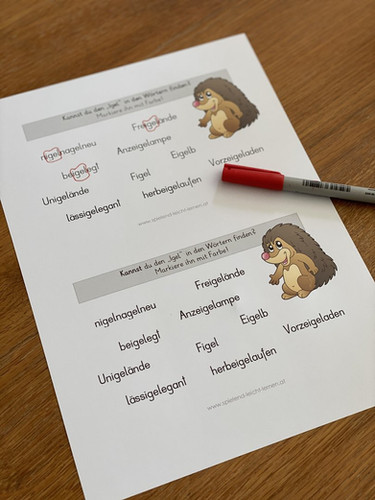 Kannst du den „Igel“ in den Wörtern finden?
Markiere ihn mit Farbe!
Freigelände
nigelnagelneu
Anzeigelampe
beigelegt
Eigelb
Vorzeigeladen
Figel
Unigelände
herbeigelaufen
lässigelegant
www.spielend-leicht-lernen.at
Kannst du den „Igel“ in den Wörtern finden?
Markiere ihn mit Farbe!
Freigelände
nigelnagelneu
Anzeigelampe
Eigelb
Vorzeigeladen
beigelegt
Figel
Unigelände
herbeigelaufen
lässigelegant
www.spielend-leicht-lernen.at